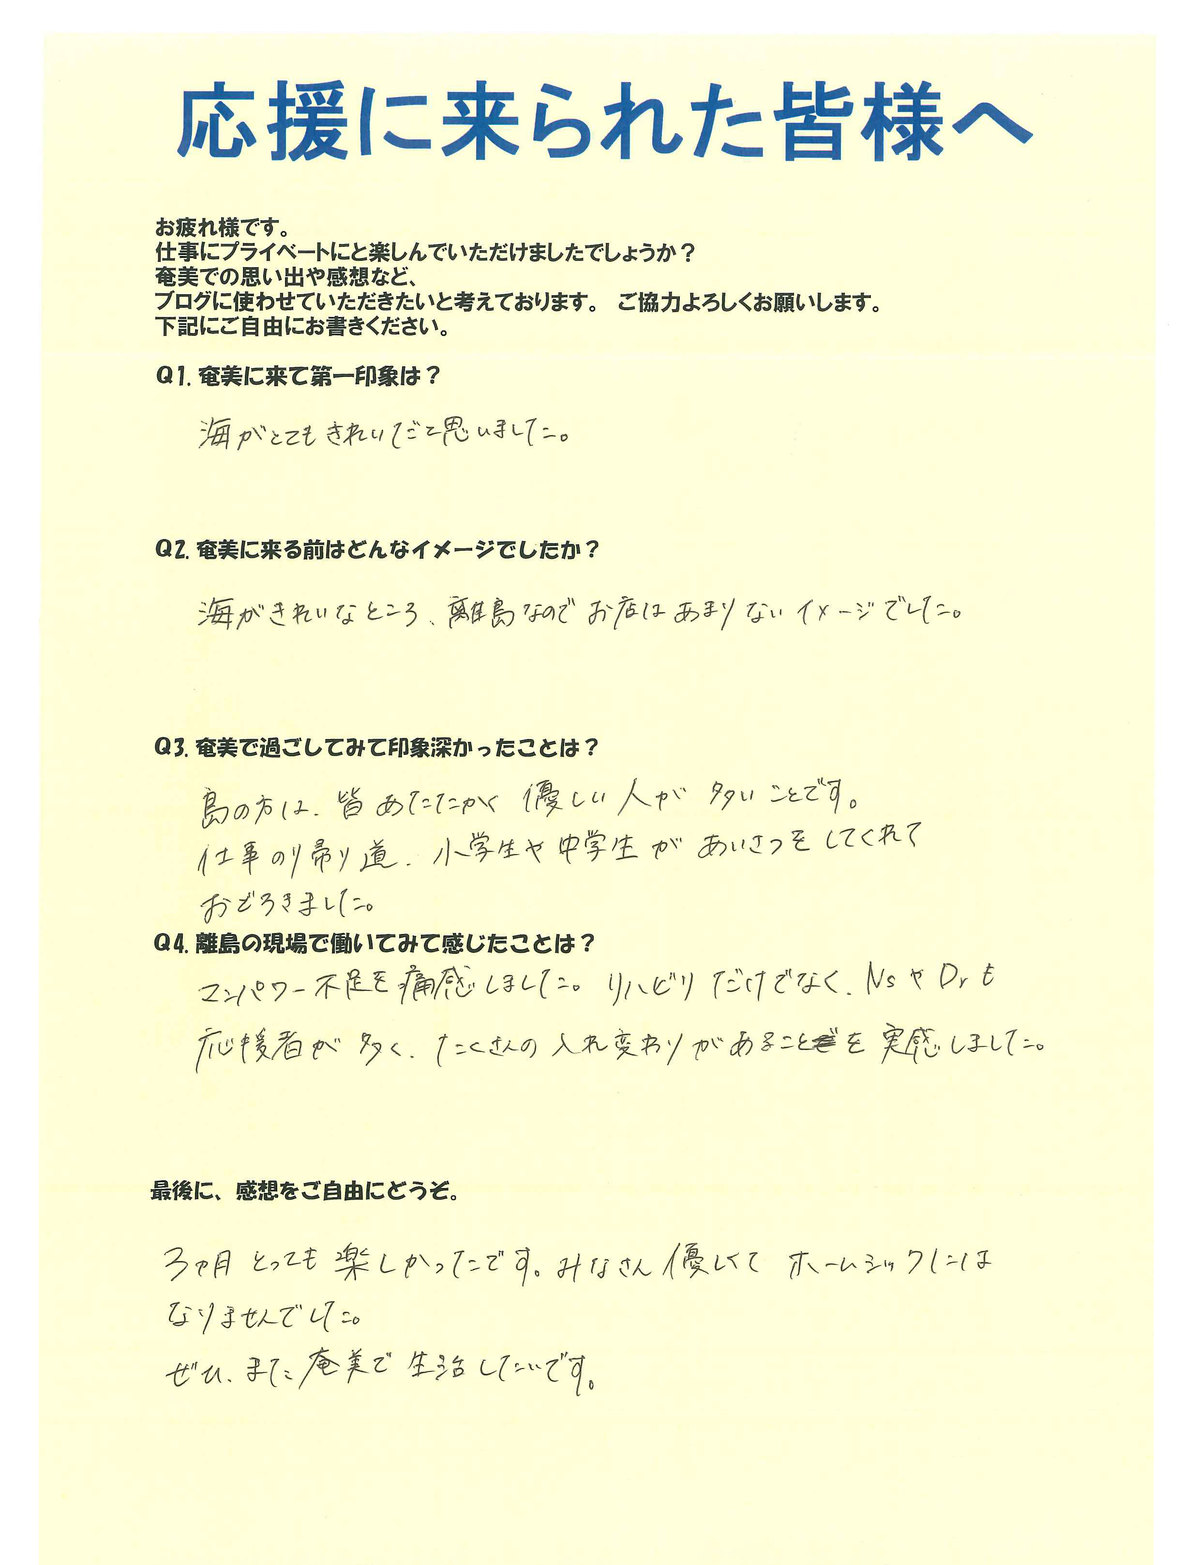 応援に来られた皆様へ
お疲れ様です。
仕事にプライベートにと楽しんでいただけましたでしょうか？
奄美での思い出や感想など、
ブログに使わせていただきたいと考えております。 ご協力よろしくお願いします。
下記にご自由にお書きください。
Q1. 奄美に来て第一印象は？
海がとてもきれいだと思いました。
Q2. 奄美に来る前はどんなイメージでしたか？
海がきれいなところ、離島なのでお店はあまりないイメージでした。
Q3. 奄美で過ごしてみて印象深かったことは？
島の方は、皆あたたかく優しい人が多いことです。
仕事のり帰り道、小学生や中学生があいさつをしてくれて
おどろきました。
Q4. 離島の現場で働いてみて感じたことは？
マンパワー不足を痛感しました。リハビリだけでなく、NsやDrも
応援者が多く、たくさんの入れ変わりがあることを実感しました。
最後に、感想をご自由にどうぞ。
3ヶ月とっても楽しかったです。みなさん優しくてホームシックには
なりませんでした。
ぜひ、また奄美で生活したいです。